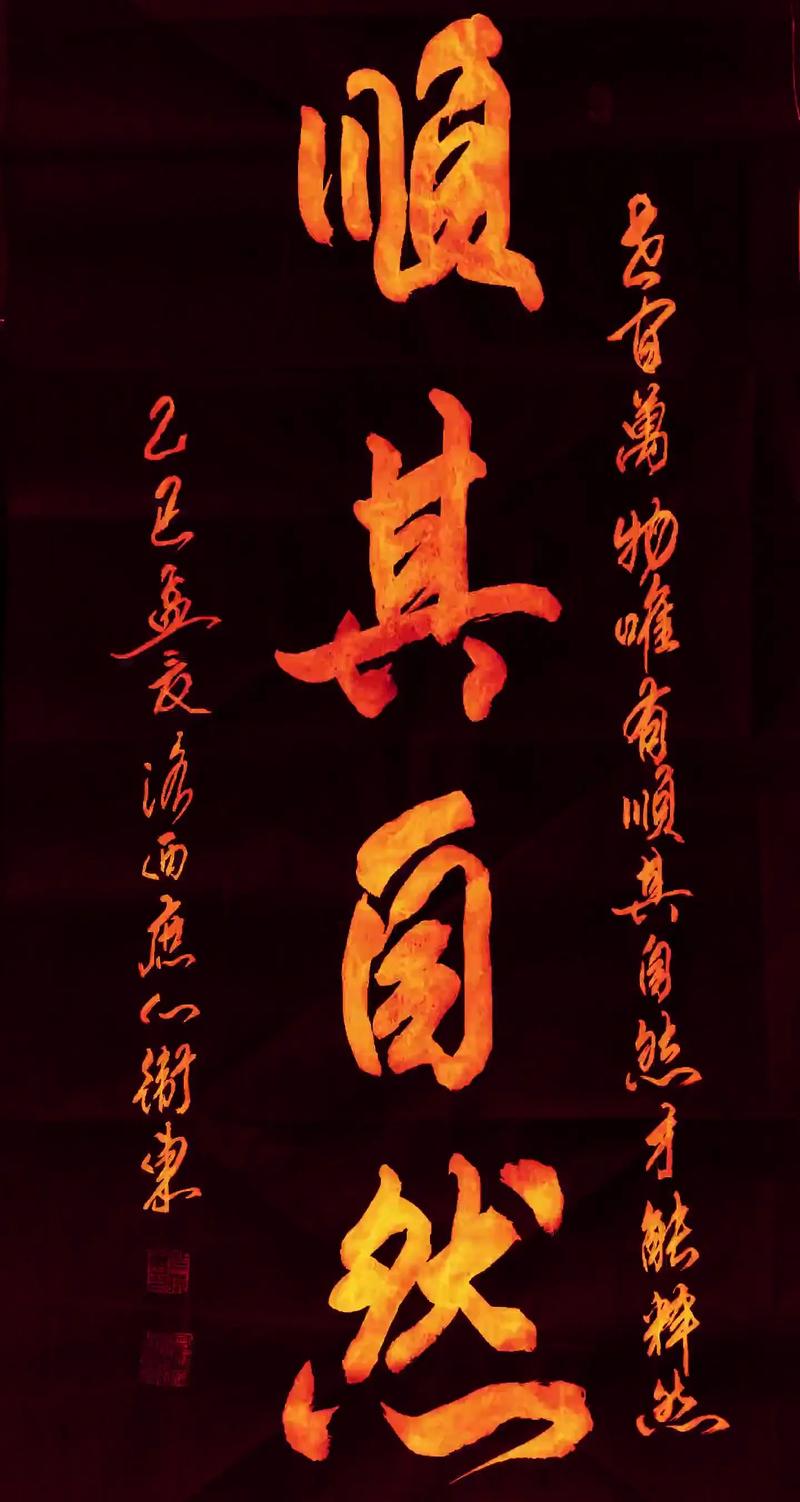 世間萬物唯有順其自然才能釋然
順其自然
乙巳孟夏洛西庶心衛東